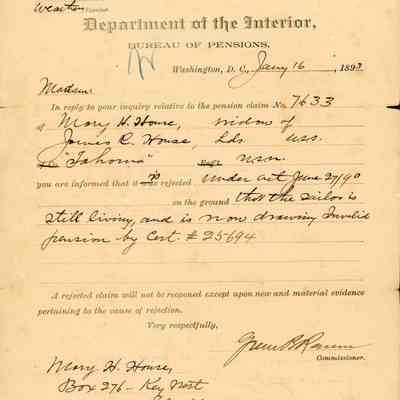 Western Division
Department of the Interior,
BUREAU OF PENSIONS,
Washington, D. C., Jany 16, 1893
Madam:
In reply to your inquiry relative to the pension claim No. 7633
of Mary H. House, widow of
James C. House, Lds U.S.S.
"Tahoma" U.S.N.
you are informed that it is rejected under act June 27/90
on the ground that the sailor is
still living, and is now drawing Invalid
pension by Cert. # 25694
A rejected claim will not be reopened except upon new and material evidence
pertaining to the cause of rejection.
Very respectfully,
Green B. Raum
Commissioner.
Mary H. House,
Box 276 - Key West